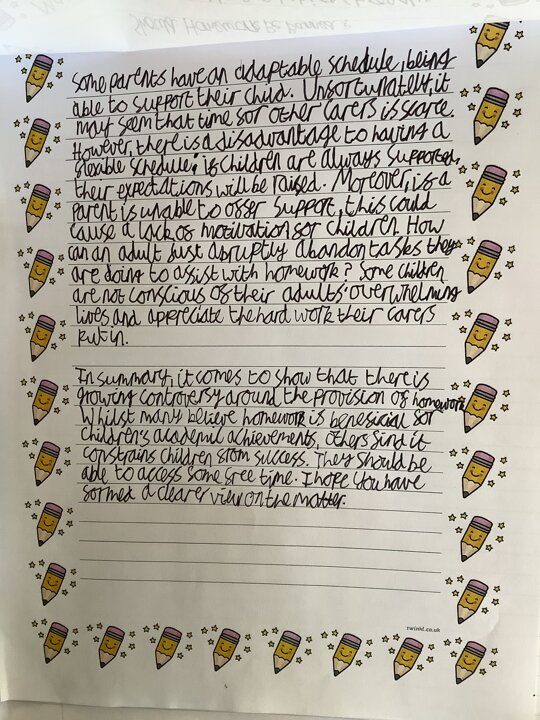 Should Homework Be Banned?
Some parents have an adaptable schedule, being
able to support their child. Unsortunately, it
may seem that time for other carers is scarce.
However, there is a disadvantage to having a
flexible schedule; if children are always supported,
their expectations will be raised. Moreover, if a
parent is unable to offer support, this could
cause a lack of motivation for children. How
can an adult just abruptly abandon tasks they
are doing to assist with homework? Some children
are not conscious of their adults' overwhelming
lives and appreciate the hard work their carers
put in.
In summary, it comes to show that there is
growing controversy around the provision of homework.
Whilst many believe homework is beneficial for
children's academic achievements, others find it
constrains children from success. They should be
able to access some free time. I hope you have
formed a clearer view on the matter.
twinkl.co.uk